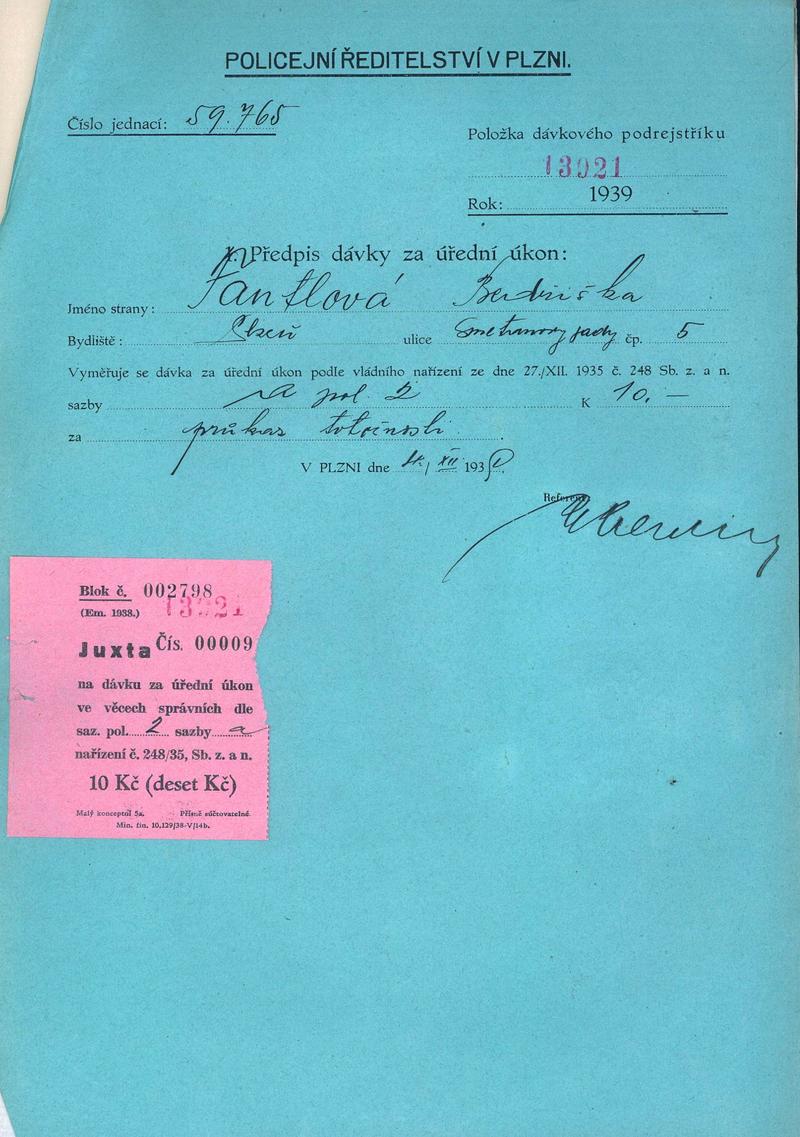 POLICEJNÍ ŘEDITELSTVÍ V PLZNI.
Číslo jednací: 59.765
Položka dávkového podrejstříku
13021
Rok: 1939
Předpis dávky za úřední úkon:
Jméno strany: Fantlová Bedřiška
Bydliště: Plzeň ulice Smetanovy sady čp. 5
Vyměřuje se dávka za úřední úkon podle vládního nařízení ze dne 27./XII. 1935 č. 248 Sb. z. a n.
sazby a pol. 2 K 10.–
za průkaz totožnosti.
V PLZNI dne / XII 193
Referent:
Blok č. 002798
(Em. 1938.) 13021
Juxta Čís. 00009
na dávku za úřední úkon
ve věcech správních dle
saz. pol. 2 sazby a
nařízení č. 248/35, Sb. z. a n.
10 Kč (deset Kč)
Malý konceptní 5a. Přísně súčtovatelné.
Min. fin. 10,129/38-V/14b.